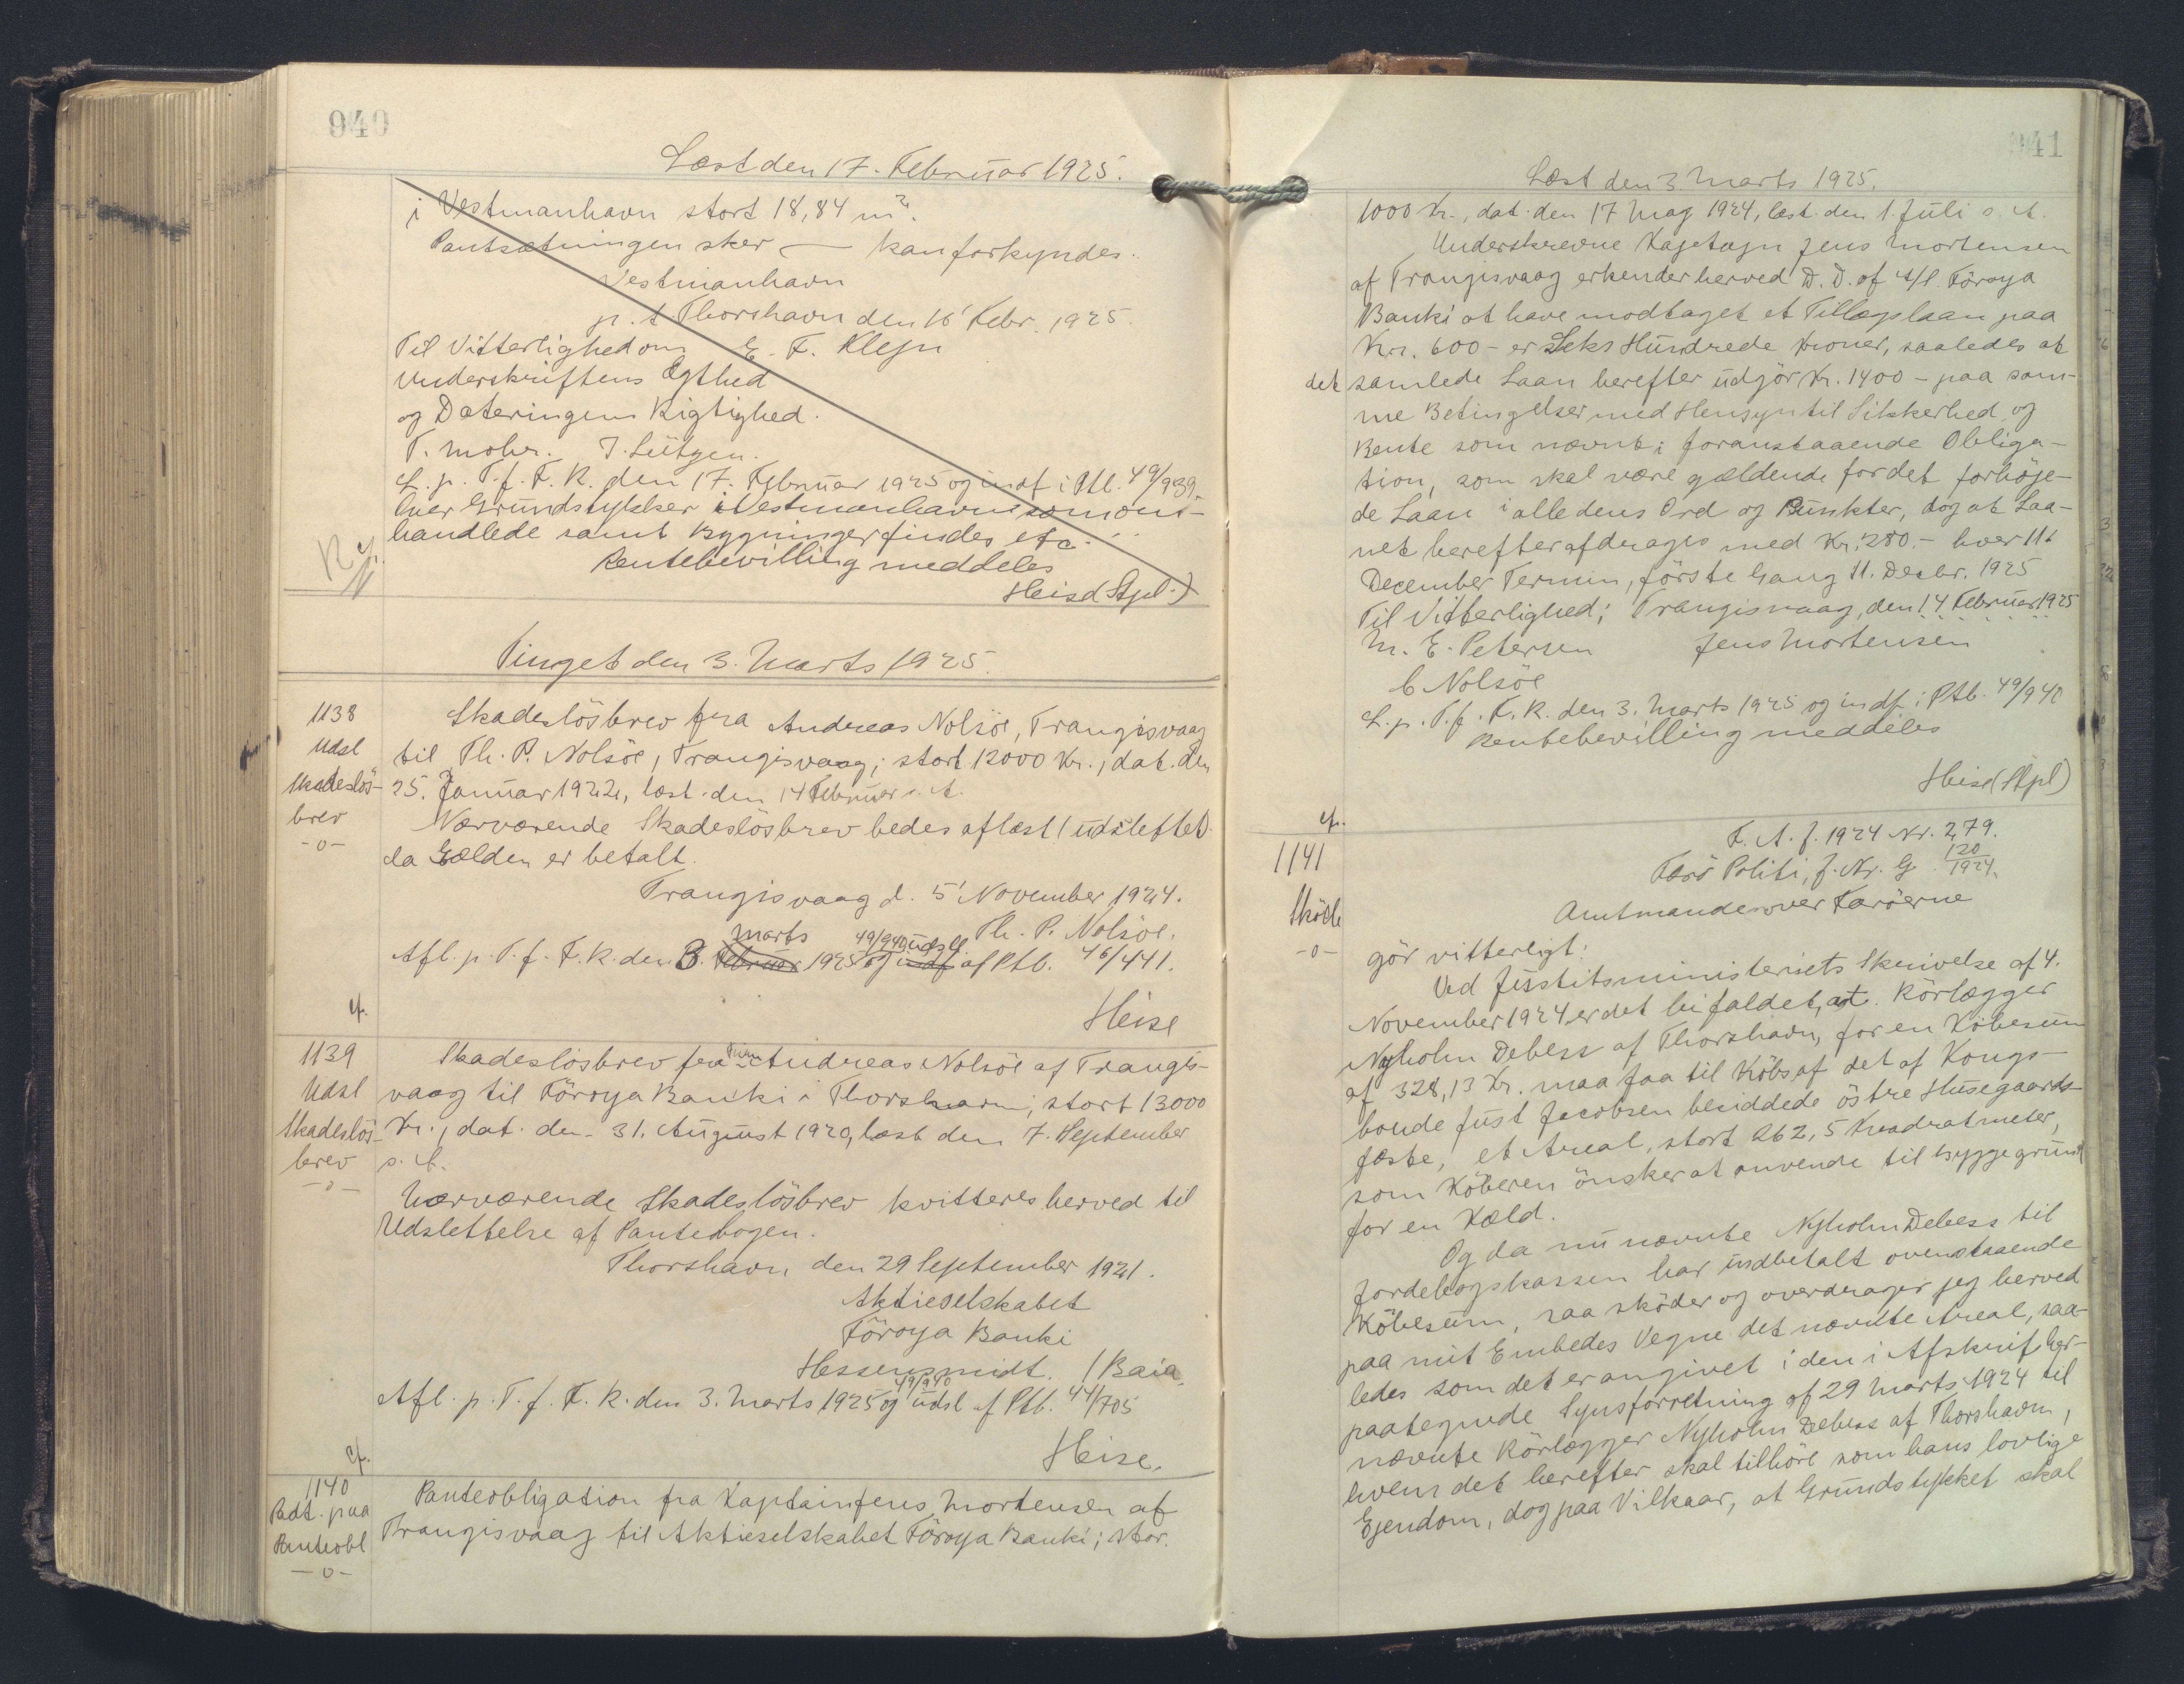 940
Læst den 17. Februar 1925.
i Vestmanhavn stort 18,84 m².
Pantsætningen sker — kan forkyndes.
Vestmanhavn
p. t. Thorshavn den 16' Febr. 1925.
Til Vitterlighed om E. F. Klejn
Underskriftens Ægthed
og Dateringens Rigtighed.
T. Mohr. J. Lützen.
L. p. T. f. F. R. den 17. Februar 1925 og indf i Ptb. 49/939.
Over Grundstykker i Vestmanhavn som om-
handlede samt Bygninger findes etc...
Rentebevilling meddeles
Heise (Stpl.)
Tinget den 3. Marts 1925.
1138
Udsl
Skadeslös-
brev
-o-
Skadeslösbrev fra Andreas Nolsöe, Trangisvaag
til Th. P. Nolsöe, Trangisvaag; stort 12000 Kr., dat. den
25. Januar 1922, læst den 14 Februar s. A.
Nærværende Skadeslösbrev bedes aflæst (udslettet)
da Gælden er betalt.
Trangisvaag d. 5' November 1924.
Th. P. Nolsöe.
Afl. p. T. f. F. R. den 3. Februar Marts 1925 og indf 49/940 udsl af Ptb. 46/441.
Heise
cf.
1139
Udsl
Skadeslös-
brev
-o-
Skadeslösbrev fra Andreas Nolsöe af Trangis-
vaag til Föroya Banki i Thorshavn; stort 13000
Kr., dat. den 31. August 1920, læst den 7. September
s. A.
Nærværende Skadeslösbrev kvitteres herved til
Udslettelse af Pantebogen.
Thorshavn den 29 September 1921.
Aktieselskabet
Föroya Banki
Hessenszmidt. / Baia.
Afl. p. T. f. F. R. den 3. Marts 1925 og 49/940 udsl af Ptb. 44/705
Heise.
cf.
1140
Padt. paa
Panteobl
-o-
Panteobligation fra Kaptain Jens Mortensen af
Trangisvaag til Aktieselskabet Föroya Banki; stor.
941
Læst den 3. Marts 1925.
1000 Kr., dat. den 17 Maj 1924, læst den 1 Juli s. A.
Underskrevne Kaptajn Jens Mortensen
af Trangisvaag erkender herved D. D. af A/S. Föroya
Banki at have modtaget et Tillægslaan paa
Kr. 600 - er Seks Hundrede Kroner, saaledes at
det samlede Laan herefter udgör Kr. 1400 - paa sam-
me Betingelser med Hensyn til Sikkerhed og
Rente som nævnt i foranstaaende Obliga-
tion, som skal være gældende for det forhöje-
de Laan i alle dens Ord og Punkter, dog at Laa-
net herefter afdrages med Kr. 280.- hver 11'
December Termin, förste Gang 11. Decbr. 1925
Til Vitterlighed; Trangisvaag, den 14 Februar 1925
M. E. Petersen Jens Mortensen
C Nolsöe
L. p. T. f. F. R. den 3. Marts 1925 og indf. i Ptb. 49/940
Rentebevilling meddeles
Heise (Stpl)
cf.
1141
Sköde
-o-
F. A. J. 1924 Nr. 279.
Færö Politi, J. Nr. G 120/1924.
Amtmanden over Færöerne
gör vitterligt:
Ved Justitsministeriets Skrivelse af 4.
November 1924 er det bifaldet, at Rörlægger
Nyholm Debess af Thorshavn, for en Köbesum
af 328,13 Kr. maa faa til Köbs af det af Kongs-
bonde Just Jacobsen besiddede östre Husegaards-
fæste, et Areal, stort 262,5 Kvadratmeter,
som Köberen önsker at anvende til Byggegrund
for en Kæld.
Og da nu nævnte Nyholm Debess til
Jordebogskassen har indbetalt ovenstaaende
Köbesum, saa sköder og overdrager jeg herved
paa mit Embedes Vegne det nævnte Areal, saa-
ledes som det er angivet i den i Afskrift her-
paategnede Synsforretning af 29 Marts 1924 til
nævnte Rörlægger Nyholm Debess af Thorshavn,
hvem det herefter skal tilhöre som hans lovlige
Ejendom, dog paa Vilkaar, at Grundstykket skal